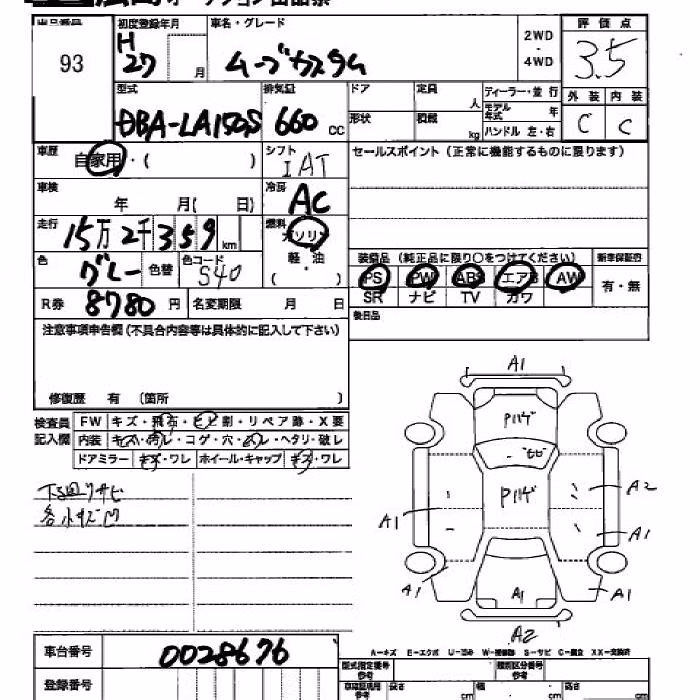 出品番号
93
初度登録年月
H
27 月
車名・グレード
ムーブカスタム
2WD
・
4WD
評価点
3.5
外装 内装
C C
型式
DBA-LA150S
排気量
660 cc
ドア
定員
人
形状
積載
kg
ディーラー・並行
モデル年式 年
ハンドル 左・右
車歴
自家用・( )
シフト
IAT
セールスポイント (正常に機能するものに限ります)
車検
年 月( 日)
冷房
AC
走行
15万2千359km
燃料
ガソリン
軽油
・
( )
色
グレー
色替
色コード
S40
装備品 (純正品に限り○をつけてください)
新車保証書
PS PW ABS エアB AW
SR ナビ TV カワ
有・無
R券
8780 円
名変期限 月 日
後日品
注意事項申告欄 (不具合内容等は具体的に記入して下さい)
修復歴 有 (箇所 )
検査員
記入欄
FW キズ・飛石・ヒビ割・リペア跡・X要
内装 キズ・汚レ・コゲ・穴・スレ・ヘタリ・破レ
ドアミラー キズ・ワレ ホイール・キャップ キズ・ワレ
下回リサビ
各小キズ凹
A1
Pハゲ
Pハゲ
A2
A1
A1
A1
A1
A1
A2
車台番号
0028676
登録番号
A-キズ E-エクボ U-凹み W-補修跡 S-サビ C-腐食 XX-交換済
型式指定番号
参考
類別区分番号
参考
参考
長さ cm
幅 cm
高さ